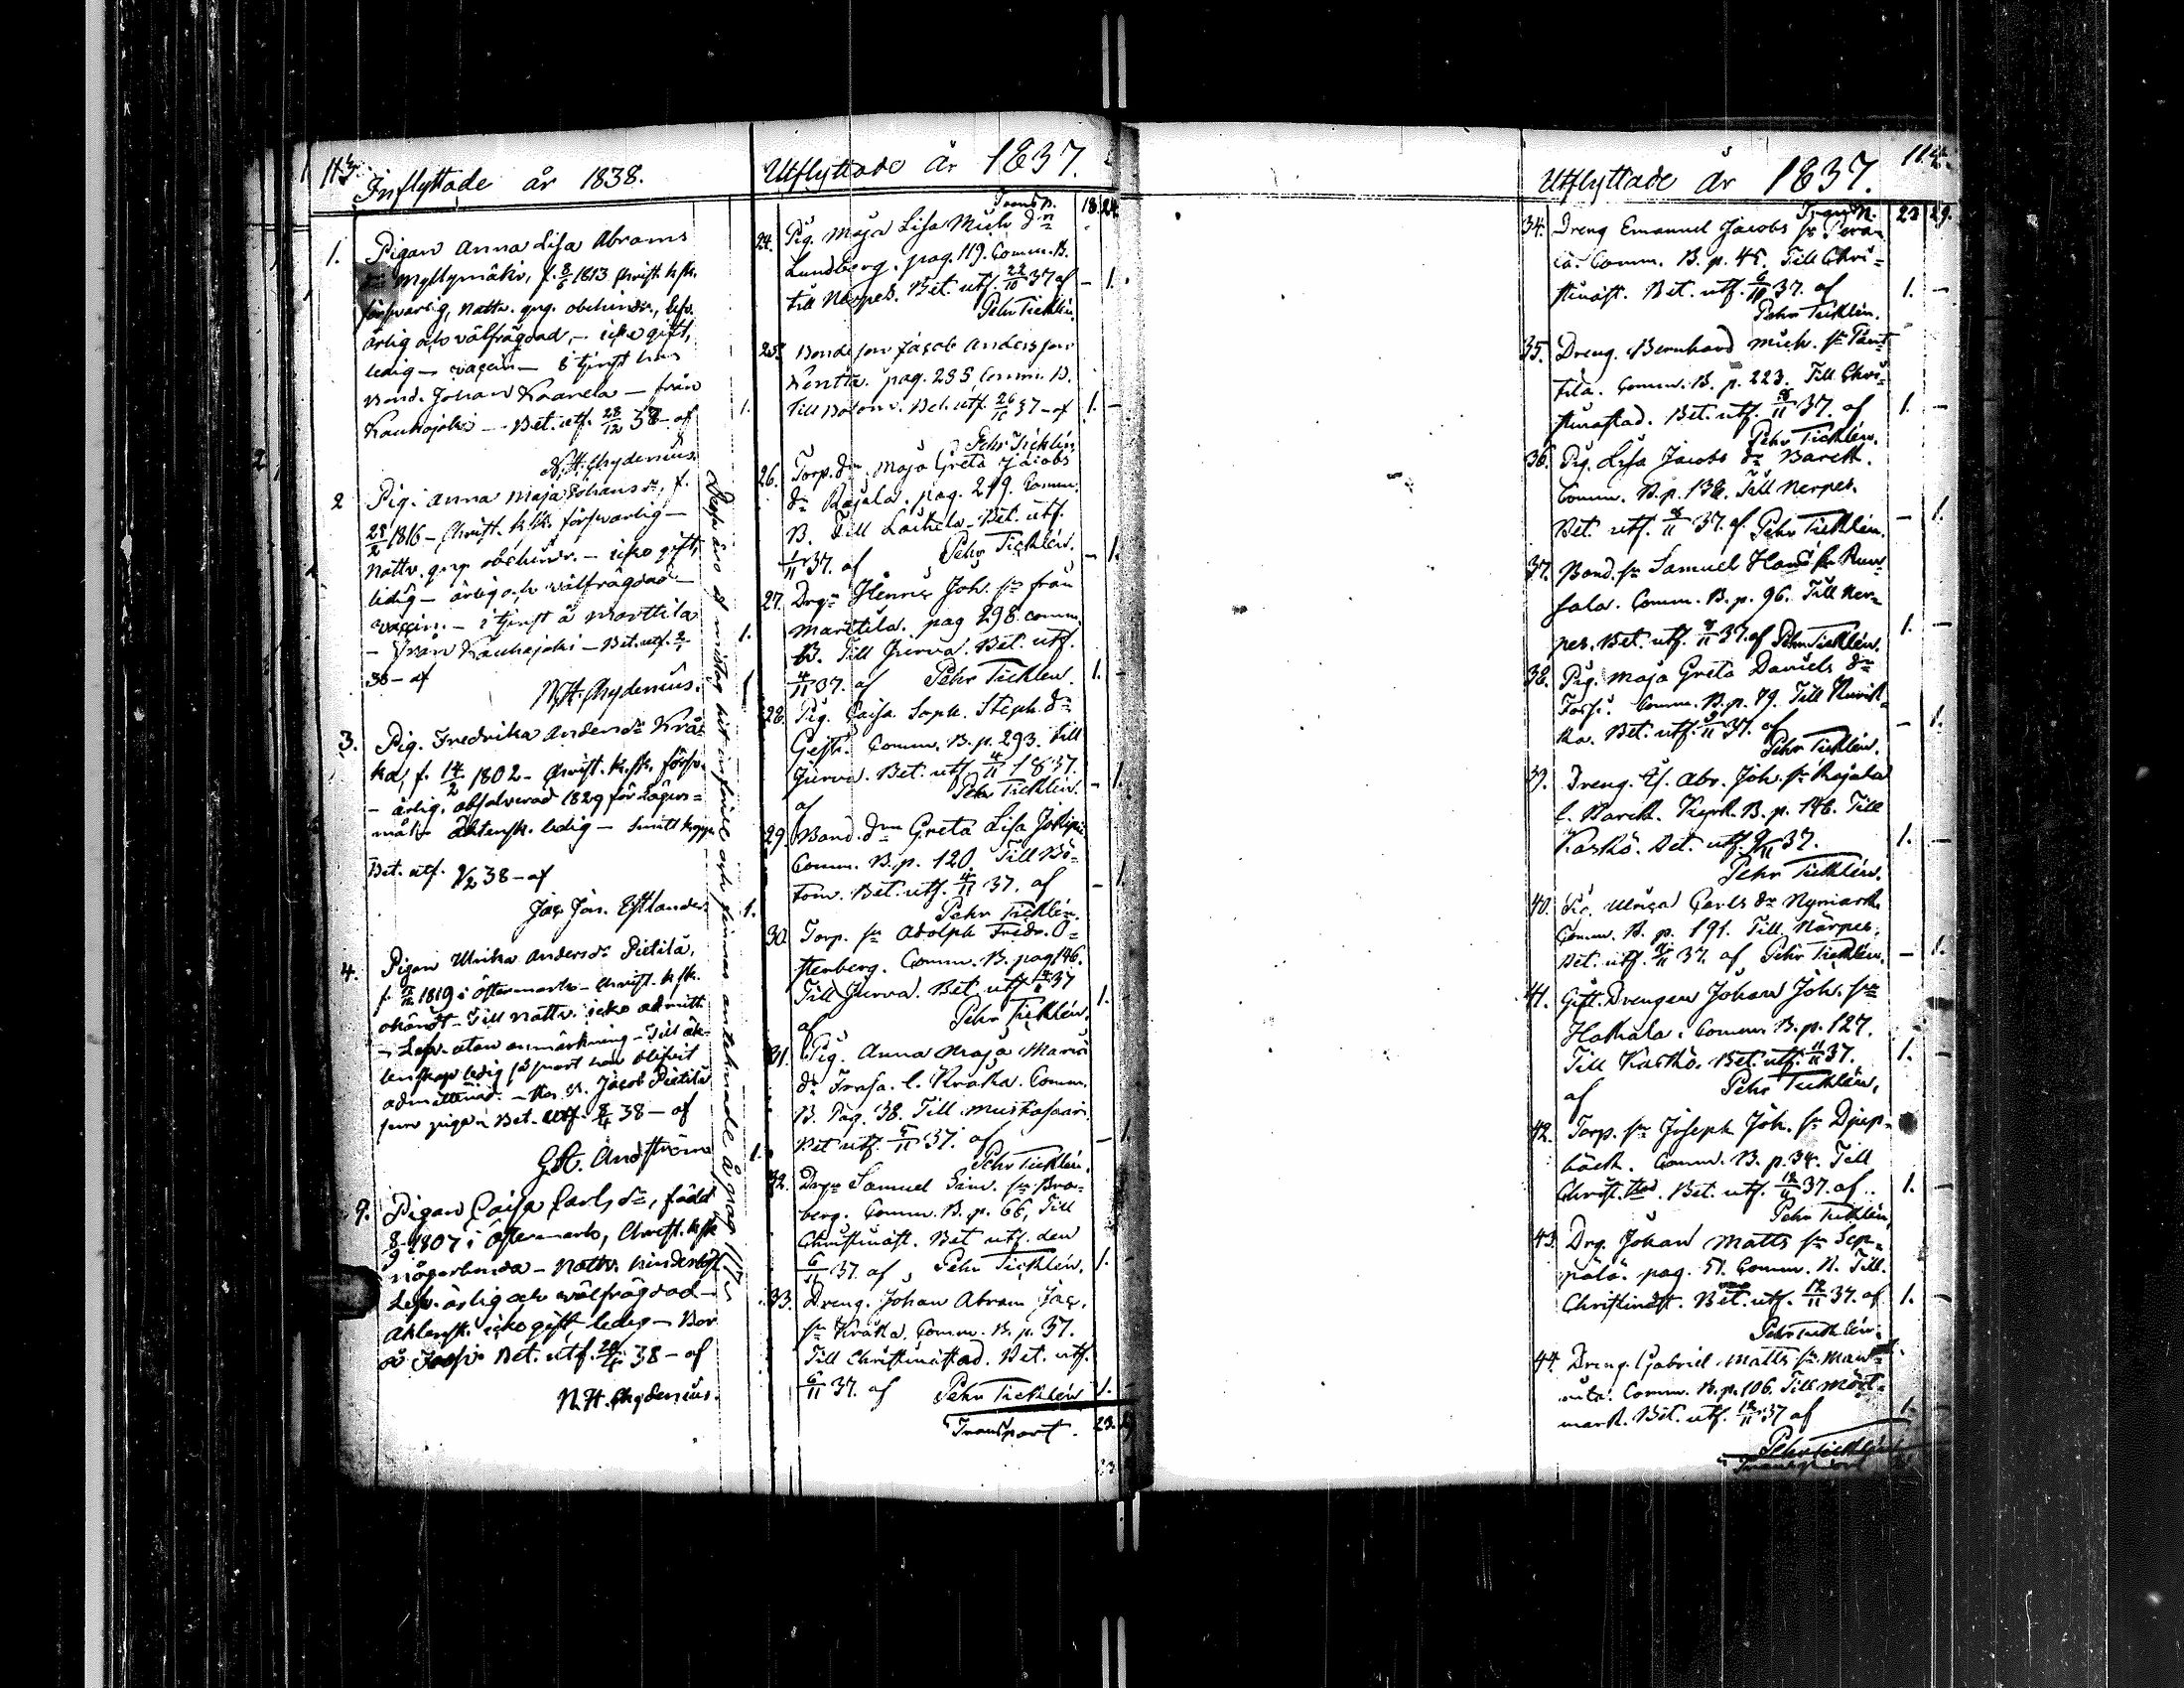 113.
Inflyttade år 1838.
1. Pigan Anna Lisa Abrams
dr Myllymäki, f. 8/5 1813 Christ. k. sk.
försvarlig, Nattv. gng. obehindr., lefv.
ärlig och välfrägdad, - icke gift,
ledig - vaccin - i tjenst hos
Bond. Johan Kaarela - från
Kauhajoki - Bet. utf. 28/12 38 - af 1.
N. H. Chydenius
2 Pig. Anna Maja Johans dr, f.
25/2 1816 - Christ. k. sk. försvarlig -
Nattv. gng. obehindr. - icke gift,
ledig - ärlig och välfrägdad -
vaccin. - i tjenst å Marttila
- från Kauhajoki - Bet. utf. 1.
38 - af
N. H. Chydenius.
3. Pig. Fredrika Anders dr Krå-
ka, f. 14/2 1802 - Christ. k. sk. försv.
- ärlig, absolverad 1829 för Lägers-
mål - Äktensk. ledig -
Bet. utf. 38 - af
Jac. Jon. Estlander 1.
4. Pigan Ulrika Anders dr Pietilä,
f. 1819 i Östermark - Christ. k. sk.
okändt - Till Nattv. icke admitt.
- Lefv. utan anmärkning - Till äk-
tenskap ledig så snart hon blifvit
admitterad. - Jacob Pietilä
som piga. Bet. utf. 8/4 38 - af
G. A. Andström 1.
9. Pigan Caisa Carls dr, född
8/9 1807 i Östermark, Christ. k. sk
någorlunda - Nattv. hinderlöst
Lefv. ärlig och välfrägdad -
Äktensk. icke gift, ledig - Bor
å Jossi. Bet. utf. 38 - af
N. H. Chydenius.
Dessa äro af misstag hit införde och finnas antecknade å pag 117
Utflyttade år 1837.
Transp. 18 24
24. Pig. Maja Lisa Mich dr
Lundberg. pag. 119. Comm. B.
till Nerpes. Bet. utf. 22/10 37 af - 1.
Pehr Ticklén.
25. Bondeson Jacob Andersson
Kentta. pag. 235 Comm. B.
Till Bötom. Bet. utf. 26/10 37 - af 1. -
Pehr Ticklén.
26. Torp. dr. Maja Greta Jacobs
dr Rajala. pag. 279. Comm.
B. Till Laihela - Bet. utf.
1/11 37. af Pehr Ticklén. - 1.
27. Drgn Henric Joh. sn från
Marttila. pag 298. comm.
B. Till Jurva. Bet. utf.
4/11 37. af Pehr Ticklén. 1. -
28. Pig. Caisa Soph. Steph. dr
Gästi. Comm. B. p. 293. till
Jurva. Bet. utf 4/11 1837.
af Pehr Ticklén. - 1.
29. Bond. dr Greta Lisa Jokipii
Comm. B. p. 120. Till Bö-
tom. Bet. utf. 4/11 37. af - 1.
Pehr Ticklén.
30. Torp. sn Adolph Fredr. Ö-
sterberg. Comm. B. pag 146.
Till Jurva. Bet utf 37
af Pehr Ticklén. 1.
31. Pig. Anna Maja Maria
dr Frosa. l. Kråka. Comm.
B. Pag. 38. Till Mustasaari.
Bet utf. 5/11 37. af - 1.
Pehr Ticklén.
32. Drgn Samuel Sim. sn Bro-
berg. Comm. B. p. 66. Till
Christinæst. Bet utf. den
6/11 37. af Pehr Ticklén. 1.
33. Dreng. Johan Abram Jac.
sn Kråka. Comm. B. p. 37.
Till Christinæstad. Bet. utf.
6/11 37. af Pehr Ticklén 1.
Transport. 23. 29
114.
Utflyttade år 1837.
Transp. 23 29.
34. Dreng Emanuel Jacobs sn Pera-
lä. Comm. B. p. 45. Till Chri-
stinæst. Bet. utf. 37. af 1. -
Pehr Ticklén.
35. Dreng. Bernhard Mich. sn Pant-
tila. Comm. B. p. 223. Till Chri-
stinæstad. Bet. utf. 37. af 1. -
Pehr Ticklén.
36. Pig. Lisa Jacobs dr Barck.
Comm. B. p. 136. Till Nerpes.
Bet. utf. 8/11 37. af Pehr Ticklén. - 1.
37. Bond. sn Samuel Hans sn Ruu-
sala. Comm. B. p. 96. Till Ner-
pes. Bet. utf. 8/11 37. af Pehr Ticklén. 1. -
38. Pig. Maja Greta Daniels dr
Jossi. Comm. B. p. 79. Till Kurik-
ka. Bet. utf. 9/11 37. af - 1.
Pehr Ticklén.
39. Dreng. Es. Abr. Joh. sn Rajala
l. Barck. Kyrk. B. p. 146. Till
Kaskö. Bet. utf. 9/11 37. 1. -
Pehr Ticklén.
40. Pig. Ulrica Carls dr Nymark
Comm. B. p. 191. Till Närpes.
Bet. utf. 37. af Pehr Ticklén. - 1.
41. Gift. Drengen Johan Joh. sn
Hakala. Comm. B. p. 127.
Till Kaskö. Bet. utf. 11/11 37. 1. -
af Pehr Ticklén.
42. Torp. sn Joseph Joh. sn Djup-
bäck. Comm. B. p. 34. Till
Christ. stad. Bet. utf. 12/11 37. af. 1. -
Pehr Ticklén.
43. Drg. Johan Matts sn Sep-
pälä. pag. 51. Comm. B. Till
Christinæst. Bet. utf. 12/11 37. af 1. -
Pehr Ticklén.
44. Dreng. Gabriel Matts sn Man-
nila. Comm. B. p. 106. Till Mört-
mark. Bet. utf. 12/11 37 af 1. -
Pehr Ticklén
Transport